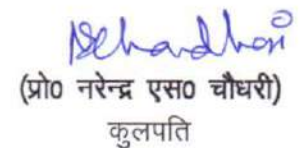 (प्रो0 नरेन्द्र एस0 चौधरी)
कुलपति